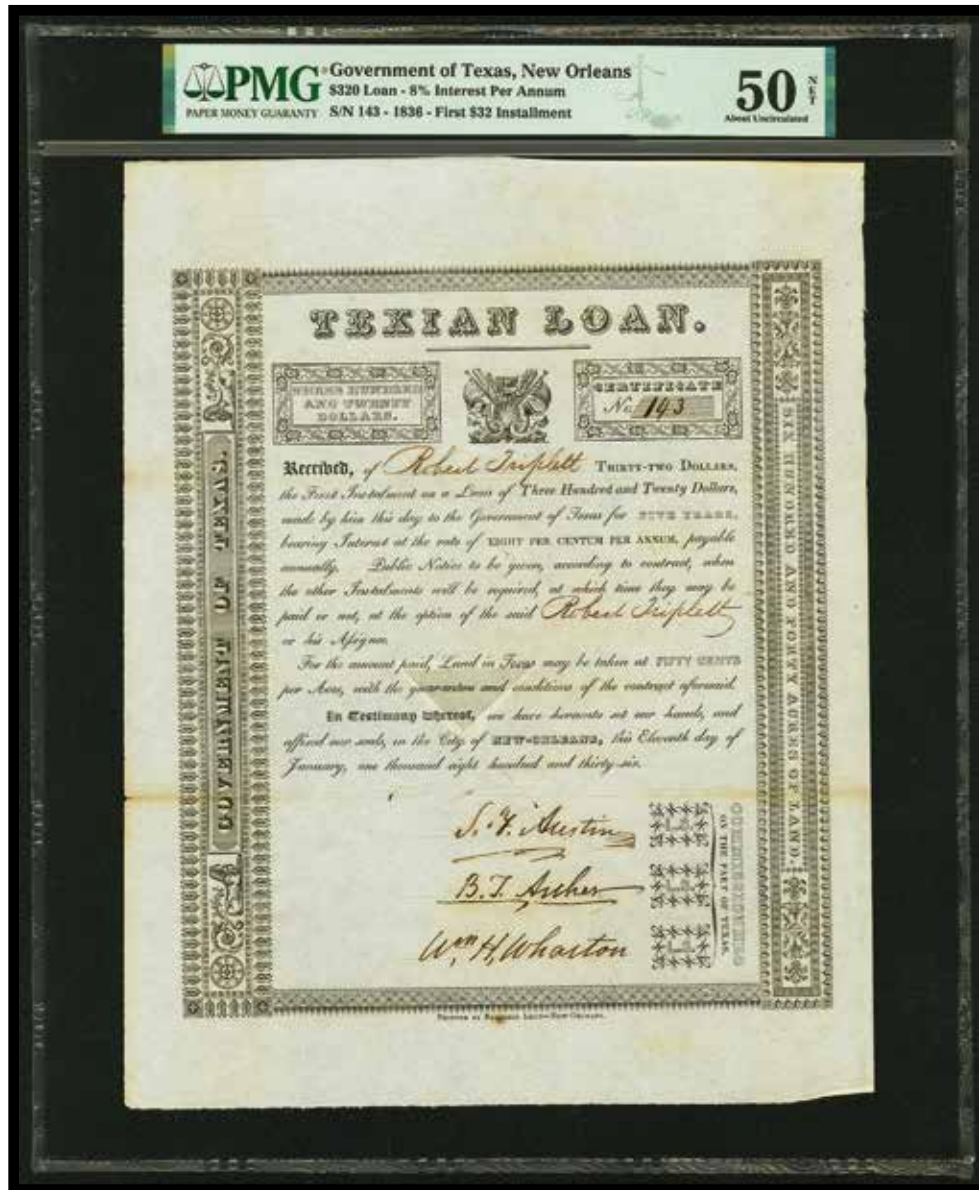 PMG
PAPER MONEY GUARANTY
Government of Texas, New Orleans
$320 Loan - 8% Interest Per Annum
S/N 143 - 1836 - First $32 Installment
50 NET
About Uncirculated
TEXIAN LOAN.
THREE HUNDRED
AND TWENTY
DOLLARS.
CERTIFICATE
No. 143
Received, of Robert Triplett THIRTY-TWO DOLLARS,
the First Instalment on a Loan of Three Hundred and Twenty Dollars,
made by him this day to the Government of Texas for FIVE YEARS,
bearing Interest at the rate of EIGHT PER CENTUM PER ANNUM, payable
annually. Public Notice to be given, according to contract, when
the other Instalments will be required, at which time they may be
paid or not, at the option of the said Robert Triplett
or his Assigns.
For the amount paid, Land in Texas may be taken at FIFTY CENTS
per Acre, with the guarantee and conditions of the contract aforesaid.
In Testimony whereof, we have hereunto set our hands, and
affixed our seals, in the City of NEW-ORLEANS, this Eleventh day of
January, one thousand eight hundred and thirty-six.
S. F. Austin
B. T. Archer
Wm H. Wharton
COMMISSIONERS
ON THE PART OF TEXAS.
GOVERNMENT OF TEXAS.
SIX HUNDRED AND FORTY ACRES OF LAND.